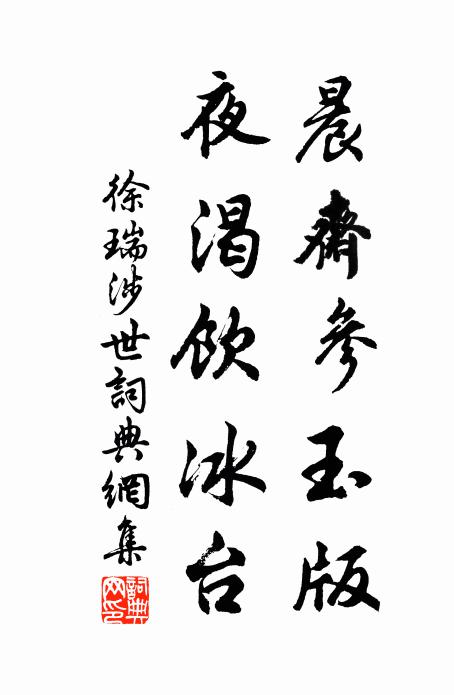 晨齋參玉版
夜渴飲冰台
徐瑞涉世詞典網集
詞典网印